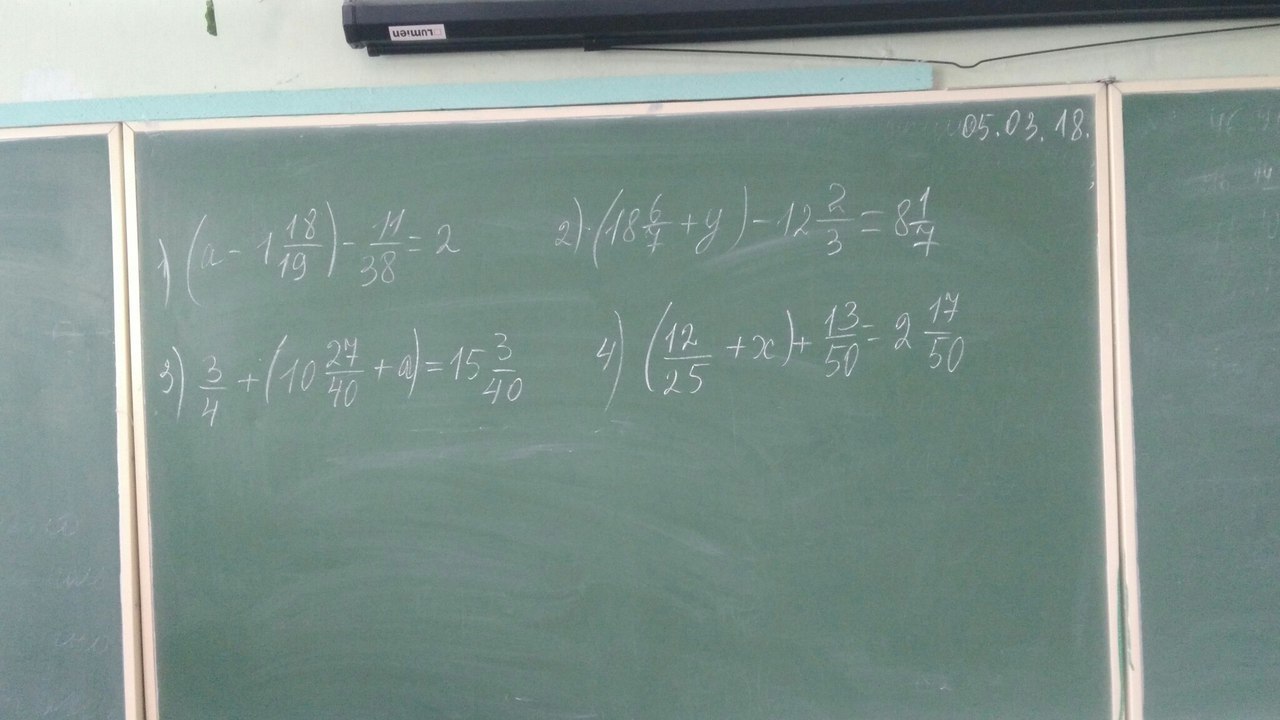 Lumien
05.03.18.
1) (a - 1 18/19) - 11/38 = 2
2) (18 6/7 + y) - 12 2/3 = 8 1/7
3) 3/4 + (10 27/40 + a) = 15 3/40
4) (12/25 + x) + 13/50 = 2 17/50